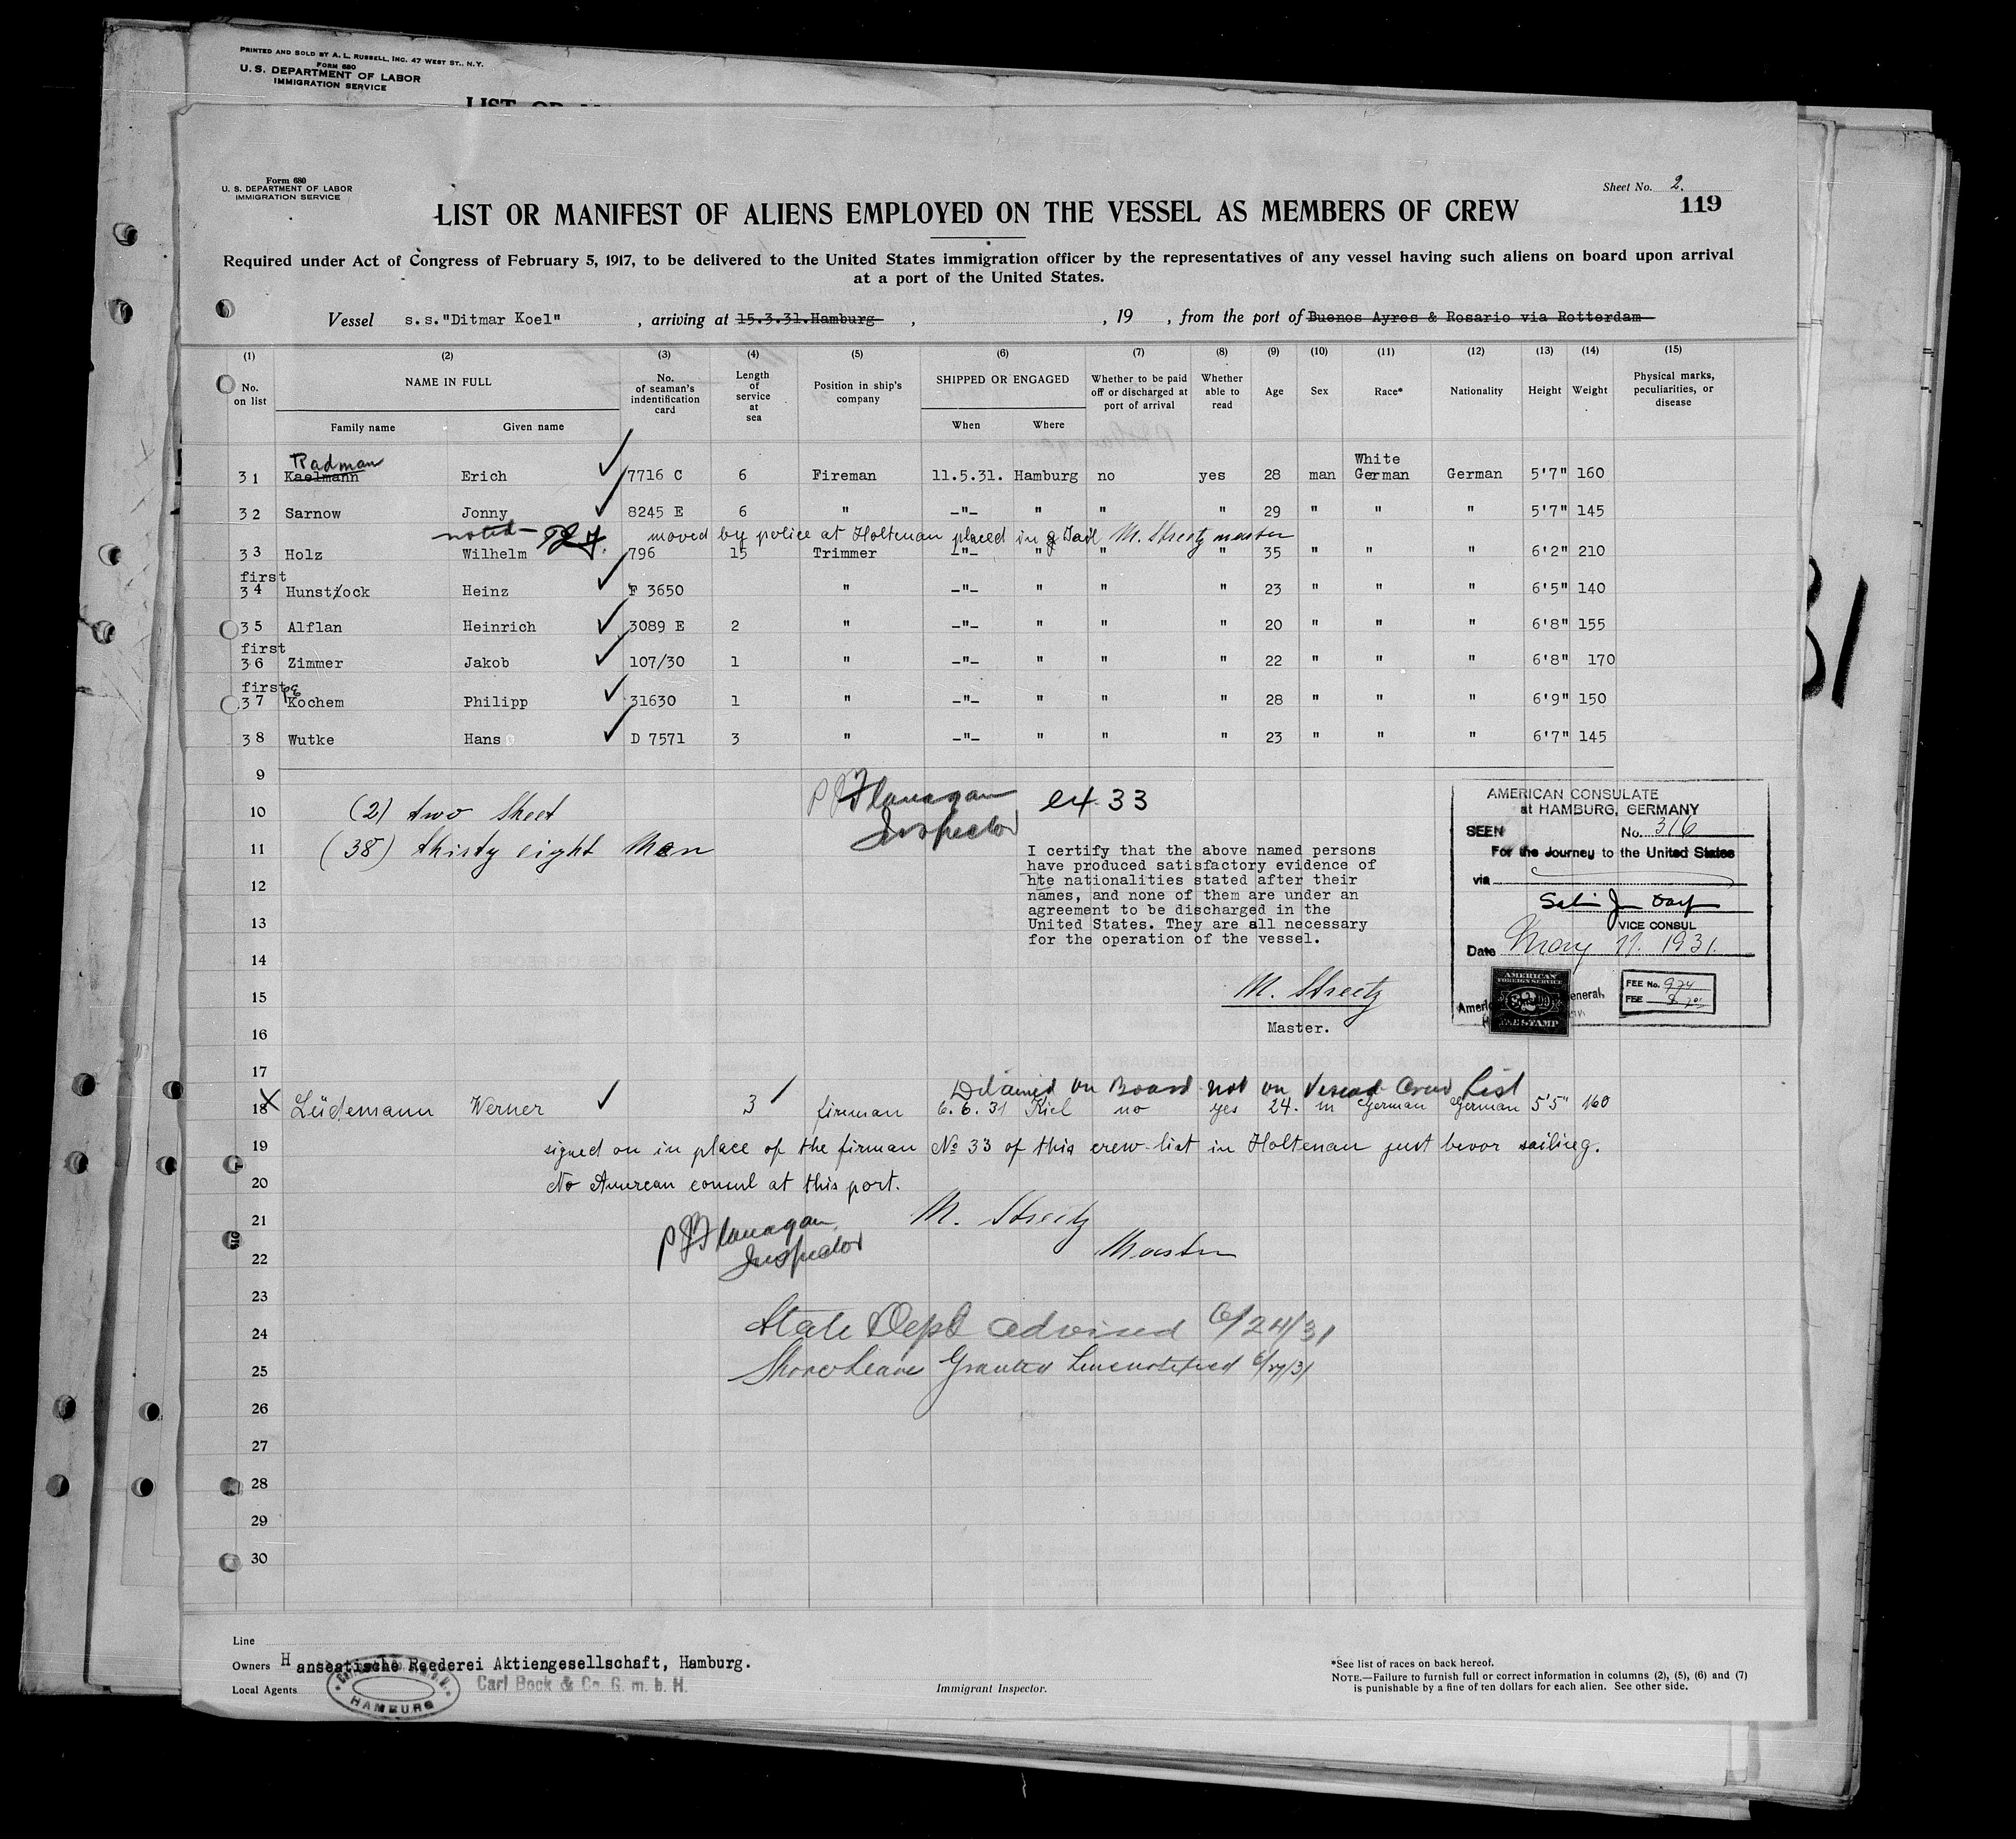 PRINTED AND SOLD BY A. L. RUSSELL, INC. 47 WEST ST., N.Y.
FORM 680
U. S. DEPARTMENT OF LABOR
IMMIGRATION SERVICE
Form 680
U. S. DEPARTMENT OF LABOR
IMMIGRATION SERVICE
Sheet No. 2.
119
LIST OR MANIFEST OF ALIENS EMPLOYED ON THE VESSEL AS MEMBERS OF CREW
Required under Act of Congress of February 5, 1917, to be delivered to the United States immigration officer by the representatives of any vessel having such aliens on board upon arrival
at a port of the United States.
Vessel s.s."Ditmar Koel" , arriving at 15.3.31.Hamburg , , 19 , from the port of Buenos Ayres & Rosario via Rotterdam
(1) (2) (3) (4) (5) (6) (7) (8) (9) (10) (11) (12) (13) (14) (15)
No. on list NAME IN FULL Family name Given name No. of seaman's indentification card Length of service at sea Position in ship's company SHIPPED OR ENGAGED When Where Whether to be paid off or discharged at port of arrival Whether able to read Age Sex Race* Nationality Height Weight Physical marks, peculiarities, or disease
Radman White
31 Kaelmann Erich 7716 C 6 Fireman 11.5.31. Hamburg no yes 28 man German German 5'7" 160
32 Sarnow Jonny 8245 E 6 " -"- " " " 29 " " " 5'7" 145
noted moved by police at Holtenau placed in Jail M. Streetz master
33 Holz Wilhelm 796 15 Trimmer -"- " " " 35 " " " 6'2" 210
first
34 Hunstock Heinz F 3650 " -"- " " " 23 " " " 6'5" 140
35 Alflan Heinrich 3089 E 2 " -"- " " " 20 " " " 6'8" 155
first
36 Zimmer Jakob 107/30 1 " -"- " " " 22 " " " 6'8" 170
first
37 Kochem Philipp 31630 1 " -"- " " " 28 " " " 6'9" 150
38 Wutke Hans D 7571 3 " -"- " " " 23 " " " 6'7" 145
9
10 (2) two Sheet
11 (38) thirty eight Men
12
13
14
15
16
17
P J Flanagan
Inspector
ex 33
I certify that the above named persons
have produced satisfactory evidence of
hte nationalities stated after their
names, and none of them are under an
agreement to be discharged in the
United States. They are all necessary
for the operation of the vessel.
M. Streetz
Master.
AMERICAN CONSULATE
at HAMBURG, GERMANY
SEEN No. 316
For the Journey to the United States
via
VICE CONSUL
Date May 11. 1931.
AMERICAN
FOREIGN SERVICE
2
FEE STAMP
FEE No. 974
FEE
Detained on Board not on Visaed Crew List
18 X Lüdemann Werner 3 fireman 6.6.31 Kiel no yes 24. m German German 5'5" 160
19 signed on in place of the firman No 33 of this crew-list in Holtenau just bevor sailing.
20 No Amercan consul at this port.
21 M. Streetz
22 Master
P J Flanagan
Inspector
23
24 State Dept advised 6/24/31
25 Shore Leave Granted Line notified
26
27
28
29
30
Line
Owners Hanseatische Reederei Aktiengesellschaft, Hamburg.
Local Agents Carl Bock & Co. G. m. b. H.
HAMBURG
Immigrant Inspector.
*See list of races on back hereof.
NOTE.—Failure to furnish full or correct information in columns (2), (5), (6) and (7)
is punishable by a fine of ten dollars for each alien. See other side.